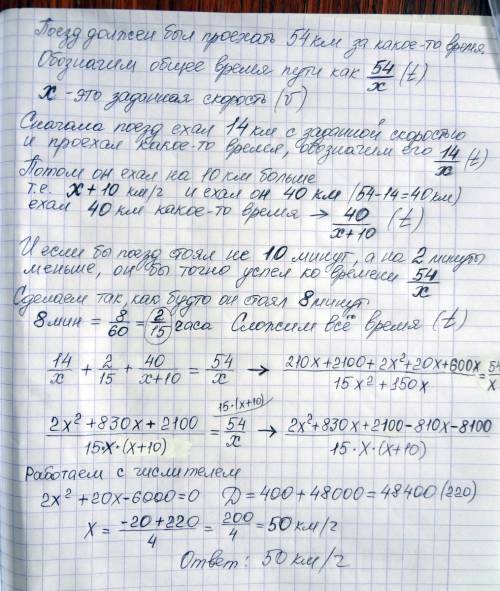 Поезд должен был проехать 54 км за какое-то время
Обозначим общее время пути как 54/x (t)
x - это заданная скорость (v)
Сначала поезд ехал 14 км с заданной скоростью
и проехал какое-то время, обозначим его 14/x (t)
Потом он ехал на 10 км больше
т.е. x+10 км/г и ехал он 40 км (54-14=40км)
ехал 40 км какое-то время → 40/(x+10) (t)
И если бы поезд стоял не 10 минут, а на 2 минуты
меньше, он бы точно успел ко времени 54/x
Сделаем так, как будто он стоял 8 минут
8 мин = 8/60 = 2/15 часа Сложим всё время (t)
14/x + 2/15 + 40/(x+10) = 54/x → (210x+2100+2x²+20x+600x)/(15x²+150x) = 54/x
(2x²+830x+2100)/(15·x·(x+10)) = 54/x 15·(x+10) → (2x²+830x+2100-810x-8100)/(15·x·(x+10))
Работаем с числителем
2x²+20x-6000=0 D=400+48000=48400 (220)
x = (-20+220)/4 = 200/4 = 50 км/г
Ответ: 50 км/г